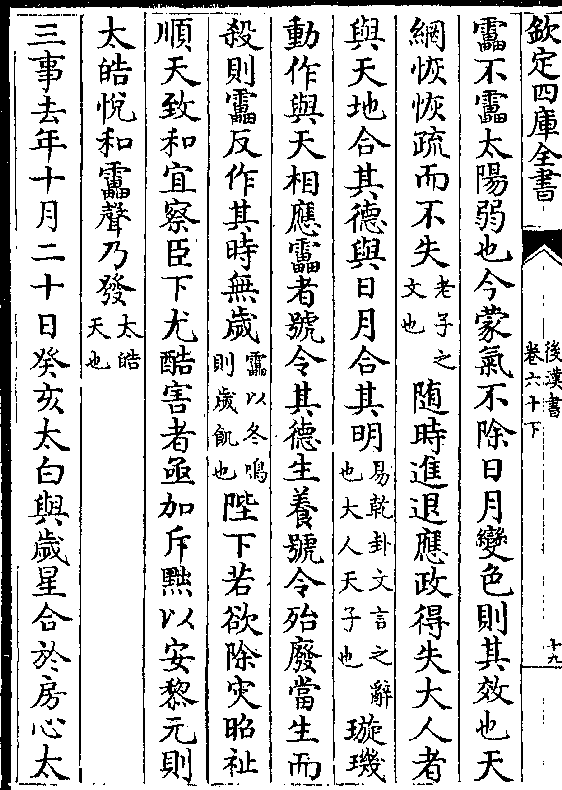 欽定四庫全書
後漢書
卷六十下
十九
靁不靁太陽弱也今蒙氣不除日月變色則其效也天
網恢恢疏而不失老子之文也随時進退應政得失大人者
與天地合其德與日月合其明易乾卦文言之辭也大人天子也璇璣
動作與天相應靁者號令其德生養號令殆廢當生而
殺則靁反作其時無歲靁以冬鳴則歲飢也陛下若欲除灾昭祉
順天致和宜察臣下尤酷害者亟加斥黜以安黎元則
太皓悅和靁聲乃發太皓天也
三事去年十月二十日癸亥太白與歲星合於房心太